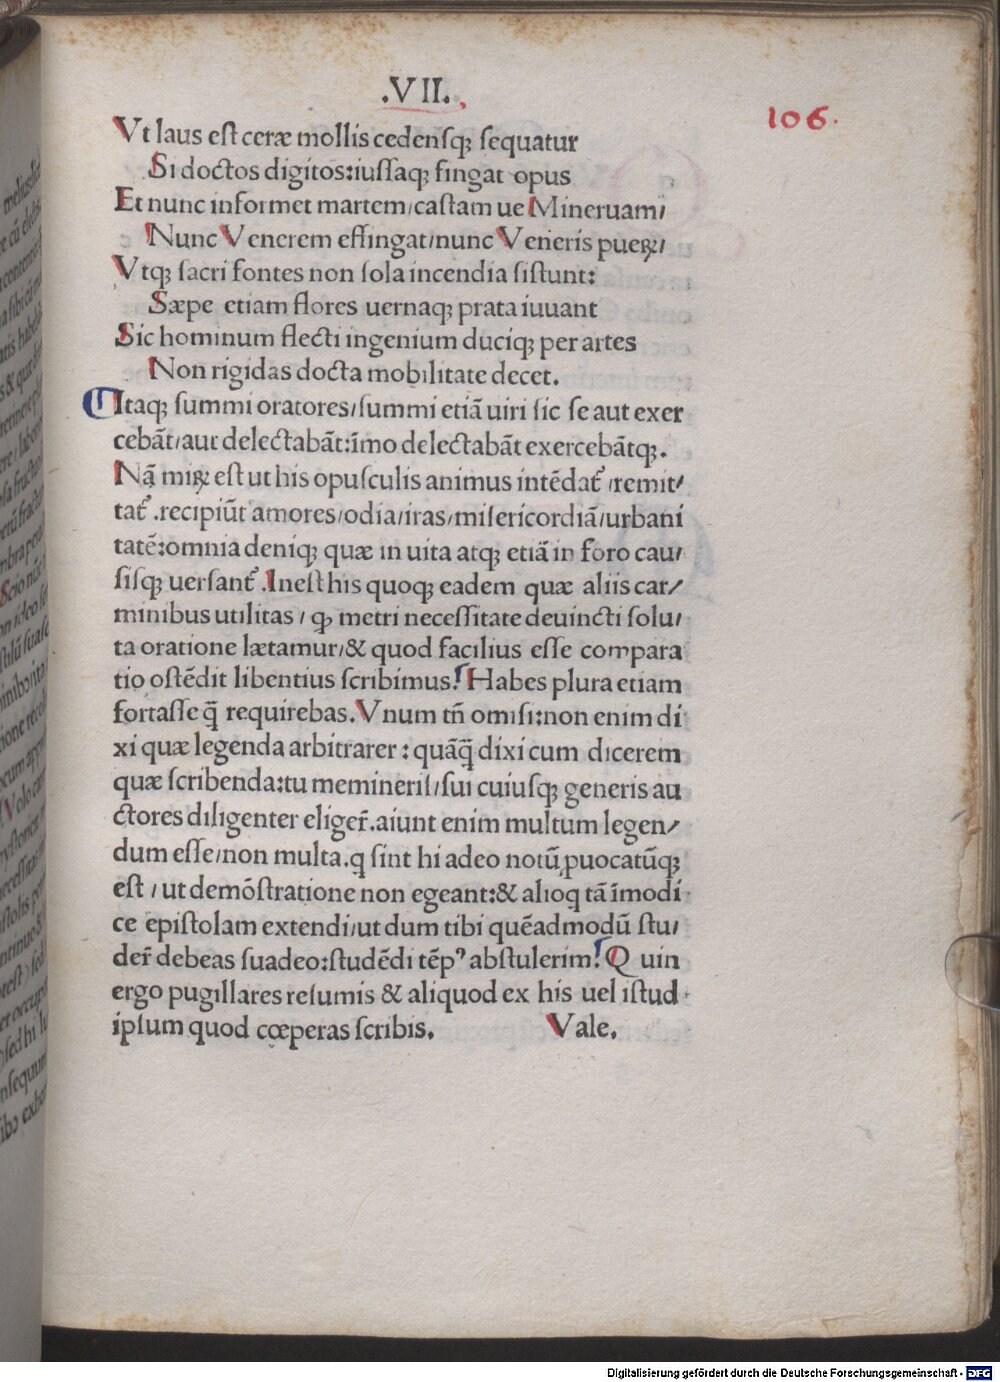 .VII.
106.
Vt laus est ceræ mollis cedensqꝫ sequatur
Si doctos digitos:iussaqꝫ fingat opus
Et nunc informet martem/castam ue Mineruam/
Nunc Venerem effingat/nunc Veneris pueꝝ/
Vtqꝫ sacri fontes non sola incendia sistunt:
Sæpe etiam flores uernaqꝫ prata iuuant
Sic hominum flecti ingenium duciqꝫ per artes
Non rigidas docta mobilitate decet.
Itaqꝫ summi oratores/summi etiã uiri sic se aut exer
cebãt/aut delectabãt:ĩmo delectabãt exercebãtqꝫ.
Nã miꝝ est ut his opusculis animus intẽdat᷑ /remit/
tat᷑ .recipiũt amores/odia/iras/misericordiã/urbani
tatẽ:omnia deniqꝫ quæ in uita atqꝫ etiã in foro cau/
sisqꝫ uersant᷑ .Inest his quoqꝫ eadem quæ aliis car/
minibus utilitas / ꝙ metri necessitate deuincti solu/
ta oratione lætamur/& quod facilius esse compara
tio ostẽdit libentius scribimus. Habes plura etiam
fortasse q̃ requirebas.Vnum tñ omisi:non enim di
xi quæ legenda arbitrarer : quãq̃ dixi cum dicerem
quæ scribenda:tu memineris/sui cuiusqꝫ generis au
ctores diligenter eliger̃.aiunt enim multum legen/
dum esse/non multa.q sint hi adeo notũ ꝓuocatũqꝫ
est / ut demõstratione non egeant:& alioq tã ĩmodi
ce epistolam extendi/ut dum tibi quẽadmodũ stu/
der̃ debeas suadeo:studẽdi tẽpꝰ abstulerim. Quin
ergo pugillares resumis & aliquod ex his uel istud
ipsum quod cœperas scribis. Vale.
Digitalisierung gefördert durch die Deutsche Forschungsgemeinschaft - DFG